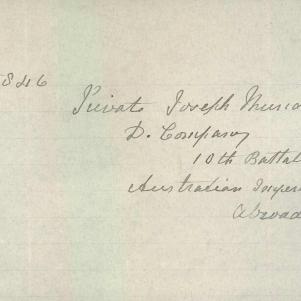 846
Private Joseph
D. Company
10th Battal
Australian Imper
Abroad